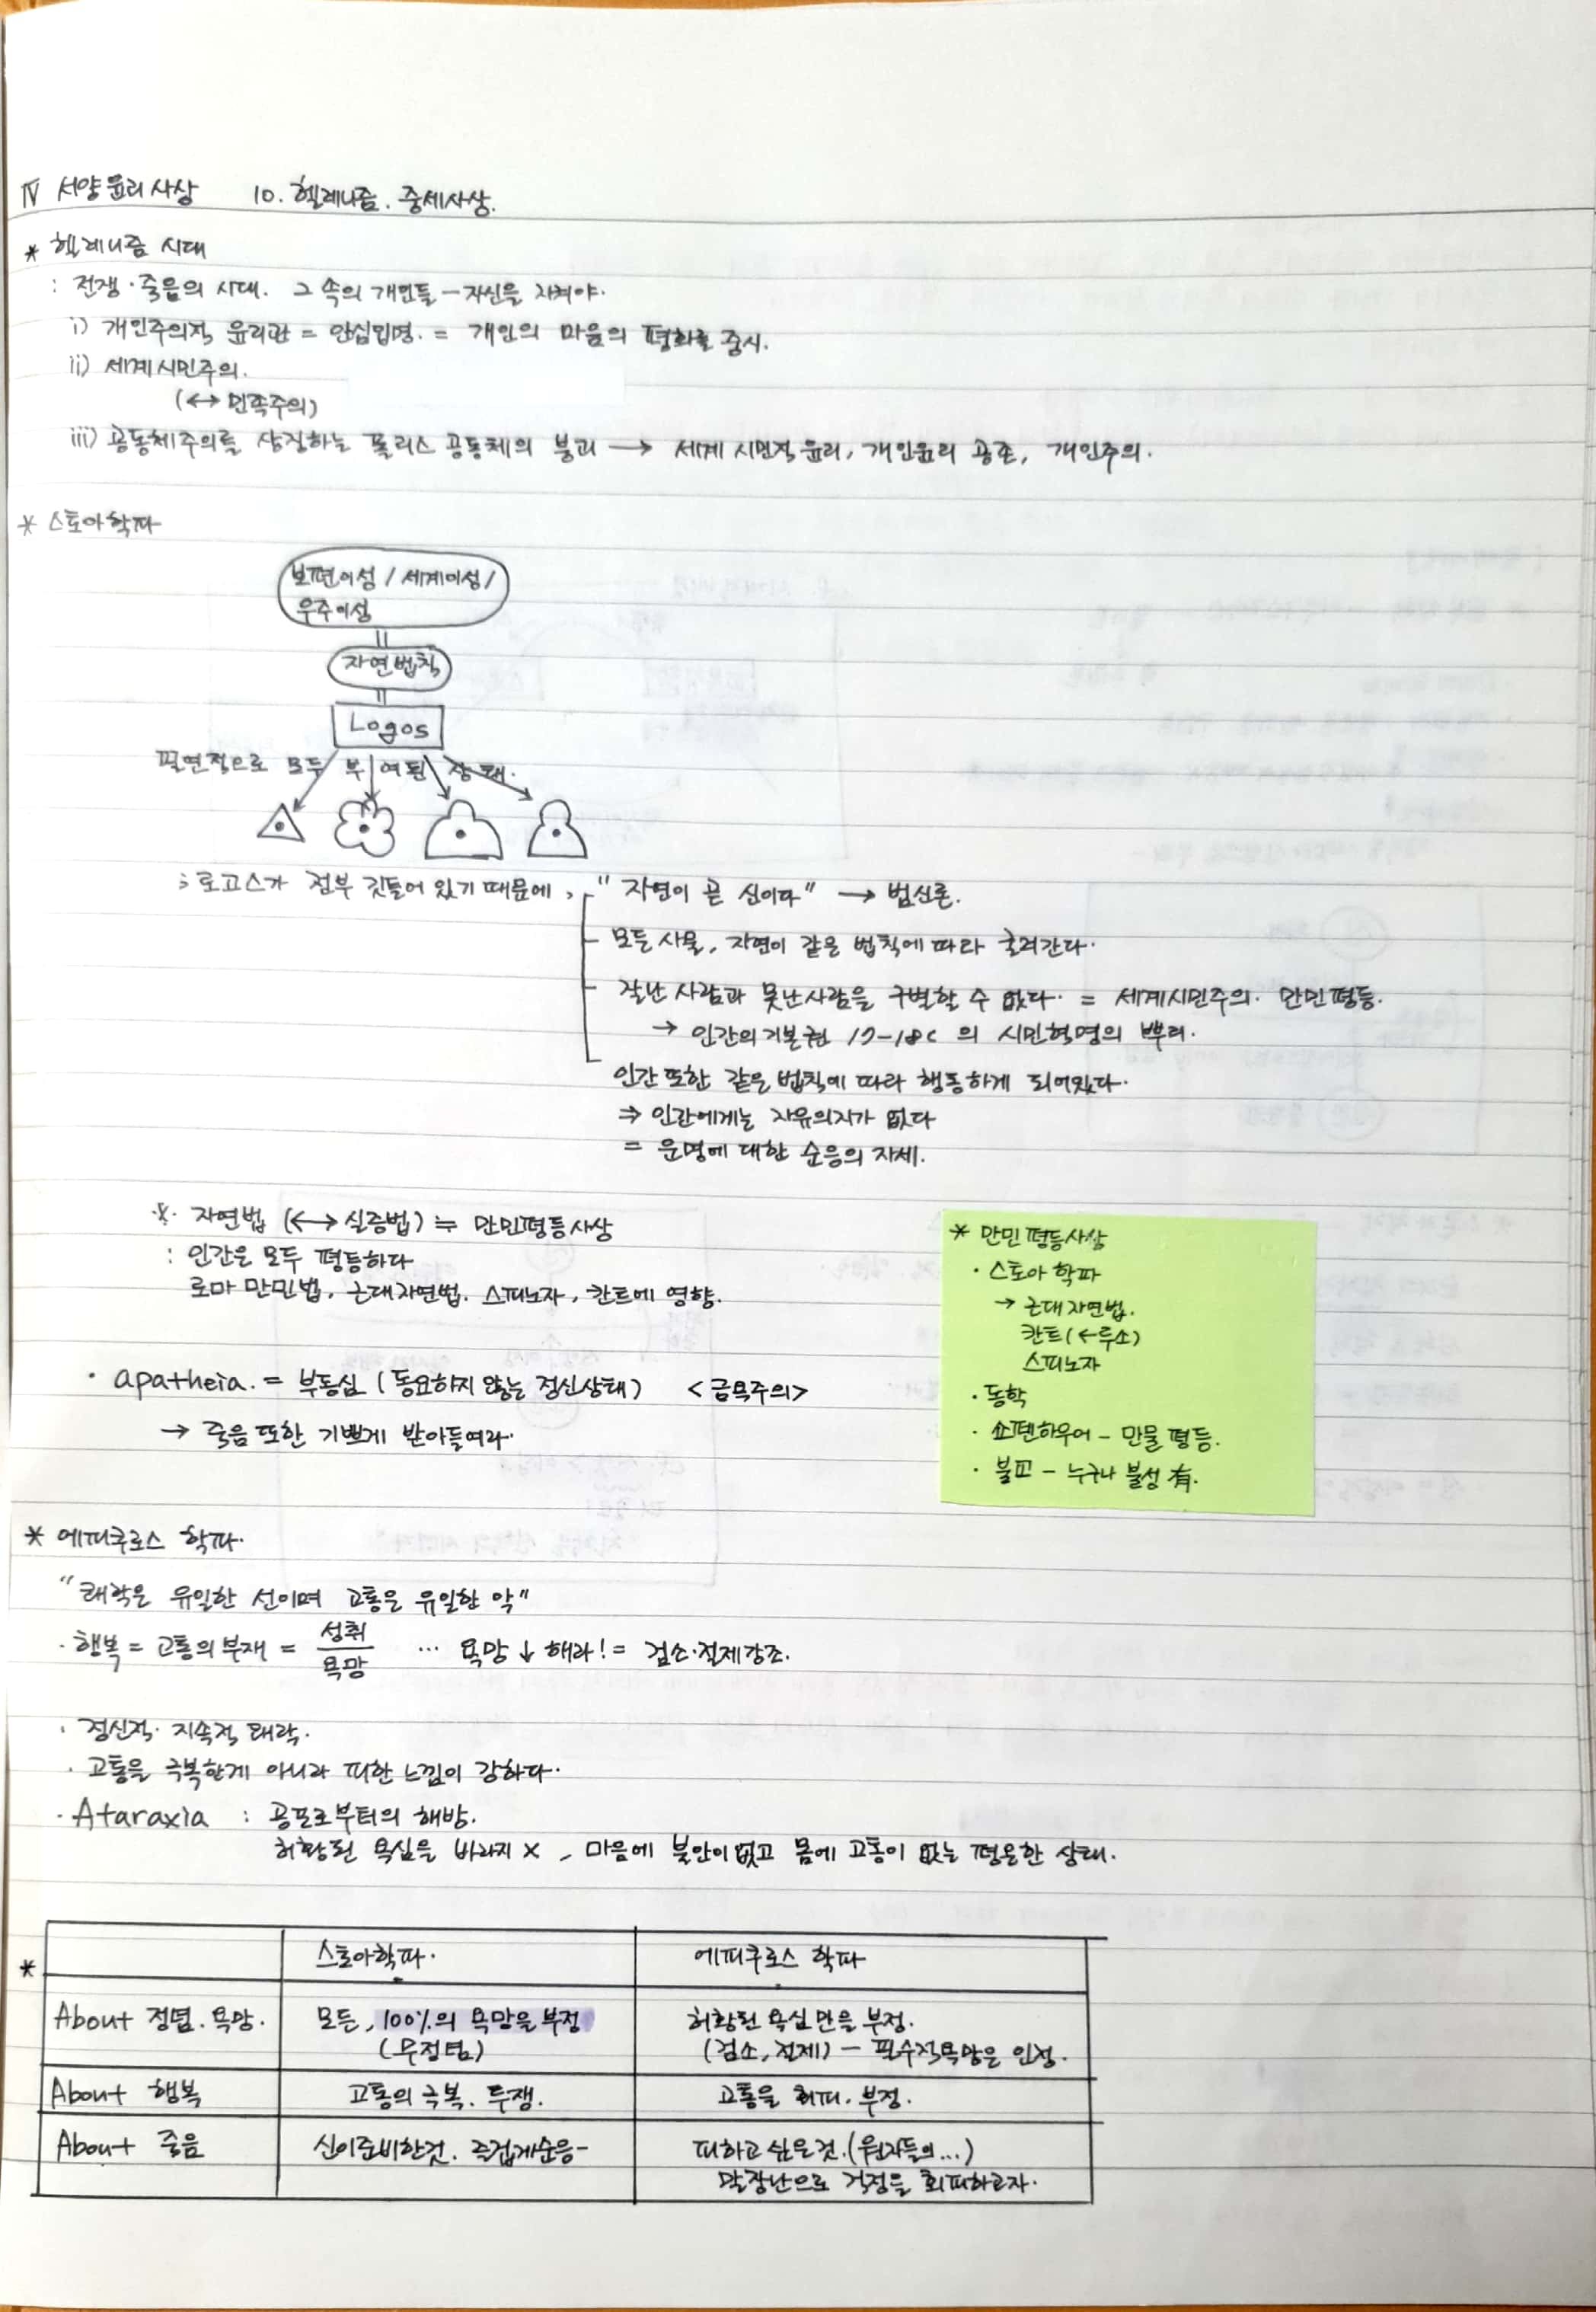 Ⅳ 서양윤리사상 10. 헬레니즘. 중세사상.
* 헬레니즘 시대
: 전쟁·죽음의 시대. 그 속의 개인들 - 자신을 지켜야.
i) 개인주의적 윤리관 = 안심입명. = 개인의 마음의 평화를 중시.
ii) 세계시민주의.
(↔ 민족주의)
iii) 공동체주의를 상징하는 폴리스 공동체의 붕괴 → 세계 시민적 윤리, 개인윤리 공존, 개인주의.
* 스토아학파
보편이성 / 세계이성 /
우주이성
자연법칙
Logos
필연적으로 모두 부여된 상태.
; 로고스가 전부 깃들어 있기 때문에, "자연이 곧 신이다" → 범신론.
모든 사물, 자연이 같은 법칙에 따라 굴러간다.
잘난 사람과 못난사람을 구별할 수 없다. = 세계시민주의. 만민평등.
→ 인간의 기본권 17-18C 의 시민혁명의 뿌리.
인간 또한 같은 법칙에 따라 행동하게 되어있다.
⇒ 인간에게는 자유의지가 없다
= 운명에 대한 순응의 자세.
※ 자연법 (↔ 실증법) ≒ 만민평등사상
: 인간은 모두 평등하다
로마 만민법, 근대자연법. 스피노자, 칸트에 영향.
· apatheia. = 부동심 (동요하지 않는 정신상태) <금욕주의>
→ 죽음 또한 기쁘게 받아들여라.
* 만민 평등사상
· 스토아 학파
→ 근대 자연법.
칸트(←루소)
스피노자
· 동학
· 쇼펜하우어 - 만물 평등.
· 불교 - 누구나 불성 有.
* 에피쿠로스 학파.
"쾌락은 유일한 선이며 고통은 유일한 악"
· 행복 = 고통의 부재 = 성취/욕망 ... 욕망↓해라! = 검소·절제강조.
· 정신적· 지속적 쾌락.
· 고통을 극복한게 아니라 피한 느낌이 강하다.
· Ataraxia : 공포로부터의 해방.
허황된 욕심을 바라지 X, 마음에 불안이 없고 몸에 고통이 없는 평온한 상태.
* 스토아학파. 에피쿠로스 학파
About 정념.욕망. 모든, 100%의 욕망을 부정 허황된 욕심 만을 부정.
(무정념) (검소, 절제) - 필수적욕망은 인정.
About 행복 고통의 극복. 투쟁. 고통을 회피. 부정.
About 죽음 신이준비한것. 즐겁게순응- 피하고 싶은것.(원자들의...)
말장난으로 걱정을 회피하고자.